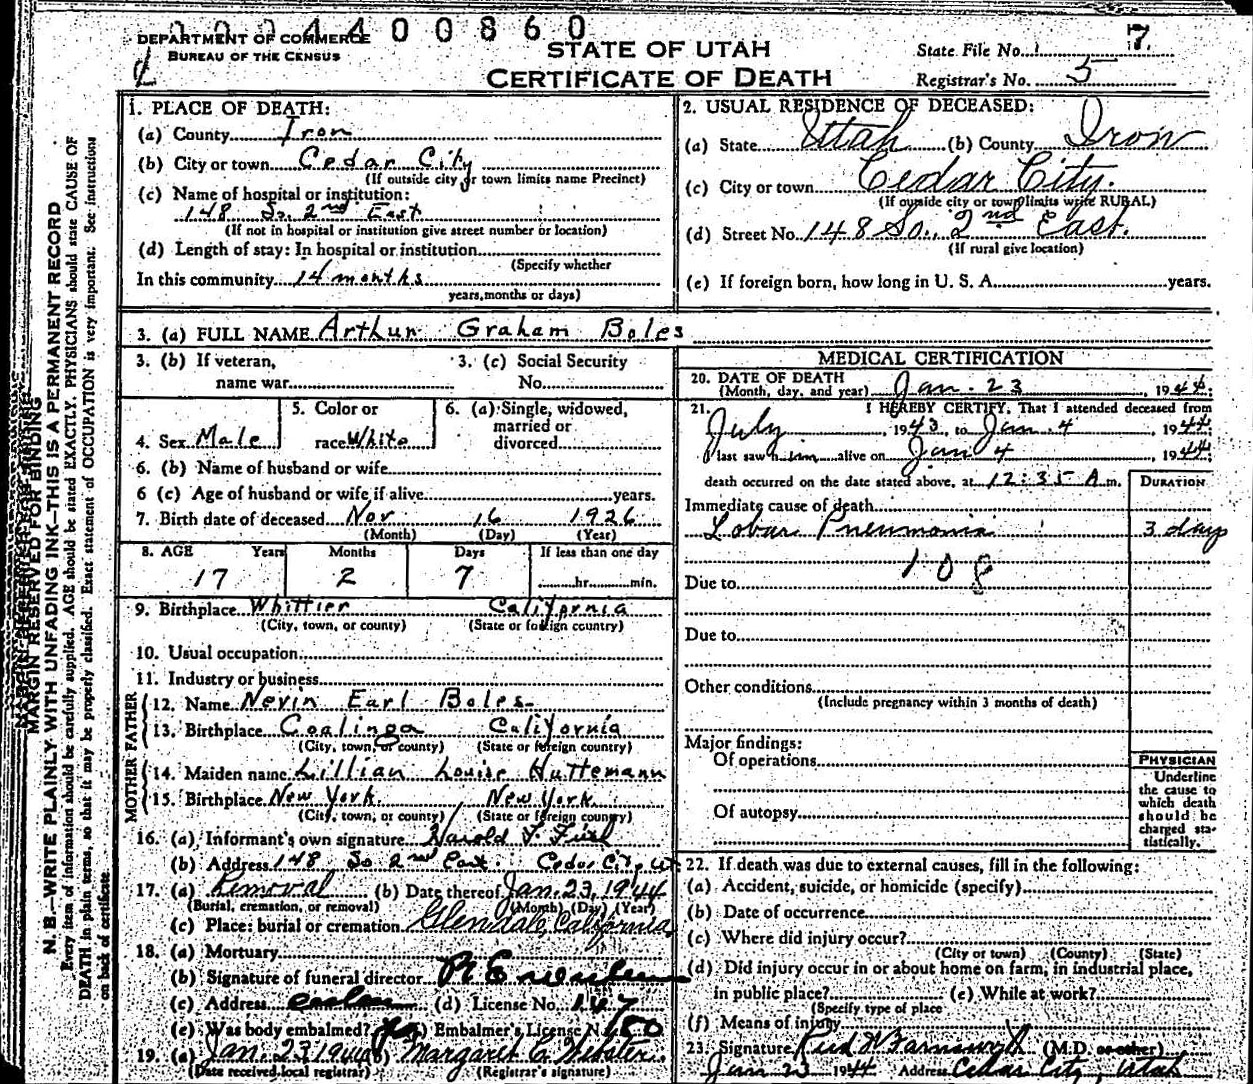 0 0 2 4 4 0 0 8 6 0
DEPARTMENT OF COMMERCE
BUREAU OF THE CENSUS
STATE OF UTAH
CERTIFICATE OF DEATH
State File No. 7
Registrar's No. 5
MARGIN RESERVED FOR BINDING
N. B.—WRITE PLAINLY WITH UNFADING INK—THIS IS A PERMANENT RECORD
Every item of information should be carefully supplied. AGE should be stated EXACTLY. PHYSICIANS should state CAUSE OF
DEATH in plain terms, so that it may be properly classified. Exact statement of OCCUPATION is very important. See instructions
on back of certificate.
1. PLACE OF DEATH:
(a) County Iron
(b) City or town Cedar City
(If outside city or town limits name Precinct)
(c) Name of hospital or institution:
148 So. 2nd East
(If not in hospital or institution give street number or location)
(d) Length of stay: In hospital or institution
(Specify whether
In this community 14 months
years, months or days)
2. USUAL RESIDENCE OF DECEASED:
(a) State Utah (b) County Iron
(c) City or town Cedar City.
(If outside city or town limits write RURAL)
(d) Street No. 148 So., 2nd East.
(If rural give location)
(e) If foreign born, how long in U. S. A. years.
3. (a) FULL NAME Arthur Graham Boles
3. (b) If veteran,
name war
3. (c) Social Security
No.
4. Sex Male
5. Color or
race White
6. (a) Single, widowed,
married or
divorced
6. (b) Name of husband or wife
6 (c) Age of husband or wife if alive years.
7. Birth date of deceased Nov 16 1926
(Month) (Day) (Year)
8. AGE Years Months Days If less than one day
17 2 7 hr. min.
9. Birthplace Whittier California
(City, town, or county) (State or foreign country)
10. Usual occupation
11. Industry or business
FATHER
12. Name Nevin Earl Boles
13. Birthplace Coalinga California
(City, town, or county) (State or foreign country)
MOTHER
14. Maiden name Lillian Louise Huttemann
15. Birthplace New York New York
(City, town, or county) (State or foreign country)
16. (a) Informant's own signature Harold
(b) Address 148 So 2nd East. Cedar City, Ut.
17. (a) Removal (b) Date thereof Jan. 23, 1944
(Burial, cremation, or removal) (Month) (Day) (Year)
(c) Place: burial or cremation Glendale, California
18. (a) Mortuary
(b) Signature of funeral director
(c) Address (d) License No. 147
(e) Was body embalmed? Embalmer's License No. 150
19. (a) Jan. 23 1944 (b) Margaret C. Webster.
(Date received local registrar) (Registrar's signature)
MEDICAL CERTIFICATION
20. DATE OF DEATH
(Month, day, and year) Jan. 23, 1944.
21. I HEREBY CERTIFY, That I attended deceased from
July, 1943, to Jan. 4, 1944
I last saw him alive on Jan 4 1944
death occurred on the date stated above, at 12:35 A m.
DURATION
Immediate cause of death
Lobar Pneumonia 3 days
108
Due to
Due to
Other conditions
(Include pregnancy within 3 months of death)
Major findings:
Of operations
Of autopsy
PHYSICIAN
Underline
the cause to
which death
should be
charged sta-
tistically.
22. If death was due to external causes, fill in the following:
(a) Accident, suicide, or homicide (specify)
(b) Date of occurrence
(c) Where did injury occur?
(City or town) (County) (State)
(d) Did injury occur in or about home on farm, in industrial place,
in public place? (e) While at work?
(Specify type of place
(f) Means of injury
23. Signature (M.D. or other)
Jan 23 1944 Address Cedar City, Utah